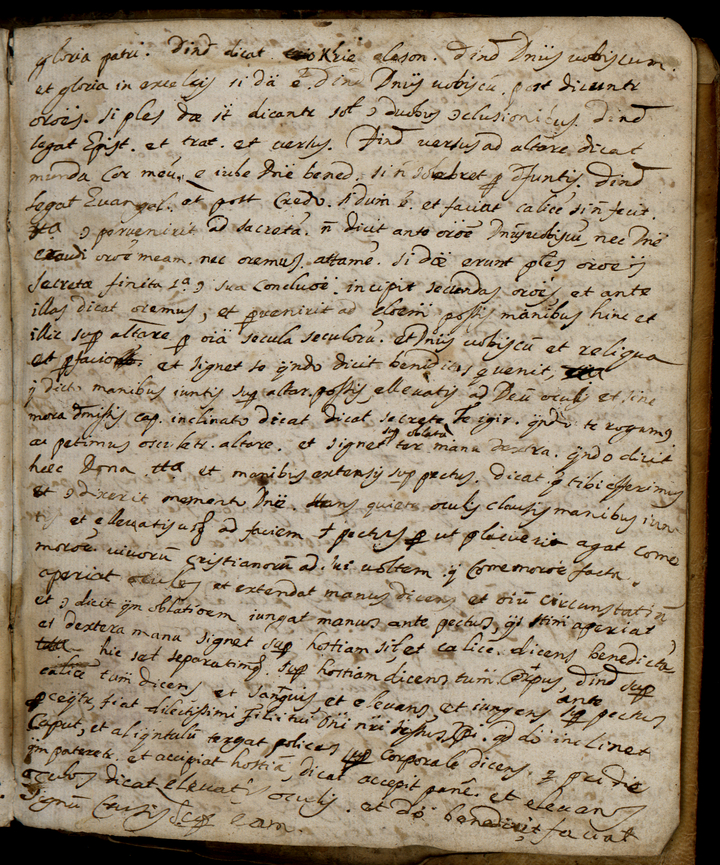 gloria patri. Dind dicat Kirie eleson. Dind Dnūs vobiscum.
et gloria in excelsis si dā ē Dind Dnūs vobiscū. post dicuntr
oroēs. si ples dāe sīt dicantr sol duobus ɔclusionibus. Dind
legat Epist. et trat. et versus. Dind versus ad altare dicat
munda Cor meū. e iube Dnē bened. si n̄ p dfuntis. Dind
legat Evangel. et post Credo. si dum b. et faciat calicē si n̄ fecit.
ɔ pervenirit ad secreta. n̄ dicit ante oroē Dnūs vobiscū, nec Dnē
exaudi oroē meam. nec oremus, attamē. si dāe erunt ples oroēs
secreta finita 1ᵃ ɔ sua Concluoē. incipit secundas oroēs, et ante
illas dicat oremus, et pvenirit ad possis manibus hinc et
illic sup altare p oīa secula seculorū. et Dnūs vobiscū et reliqua
et pfacionē, et signet se qndo dicit benedictus q venit,
q dicto manibus iuntis sup altar. possis ellevatis ad Deū oculis et sine
mora dmissis cap. inclinato dicat dicat secrete Te igir. qndo te rogamus
ac petimus osculetr. altare. et signet ter sup oblata manu dextra. qndo dicit
hec Dona et manibus extensis sup pectus. dicat q tibi offerimus
et ɔ dixerit memento Dnē. stans quiete oculis clausis manibus iunc
tis et ellevatis usq ad faciem pectus ut placuerit agat come
moroē vivorū cristianorū ad. voltem. q Comemoroē facta.
aperiat oculos et extendat manus dicens et oīū circunstatiū
et ɔ dicit qm oblationem iungat manus ante pectus, qs stim aperiat
et dextera manu signet sup hostiam sil et calicē. dicens benedictā
hic set separatimq. sup hostiam dicens tum Corpus, dind sup
calicē tum dicens et sanguis, et elevans et iungens ante pectus
fiat dilectissimi filii tui Dni nri Jessus. qdo inclinet
Caput, et tergat polices sup Corporale dicens. q pridie
qm pateretr. et accipiat hostiā, dicat accepit panē. et elevans
oculos dicat elevatis oculis. et dō benedixit faciat
signū Crucis sup eam.